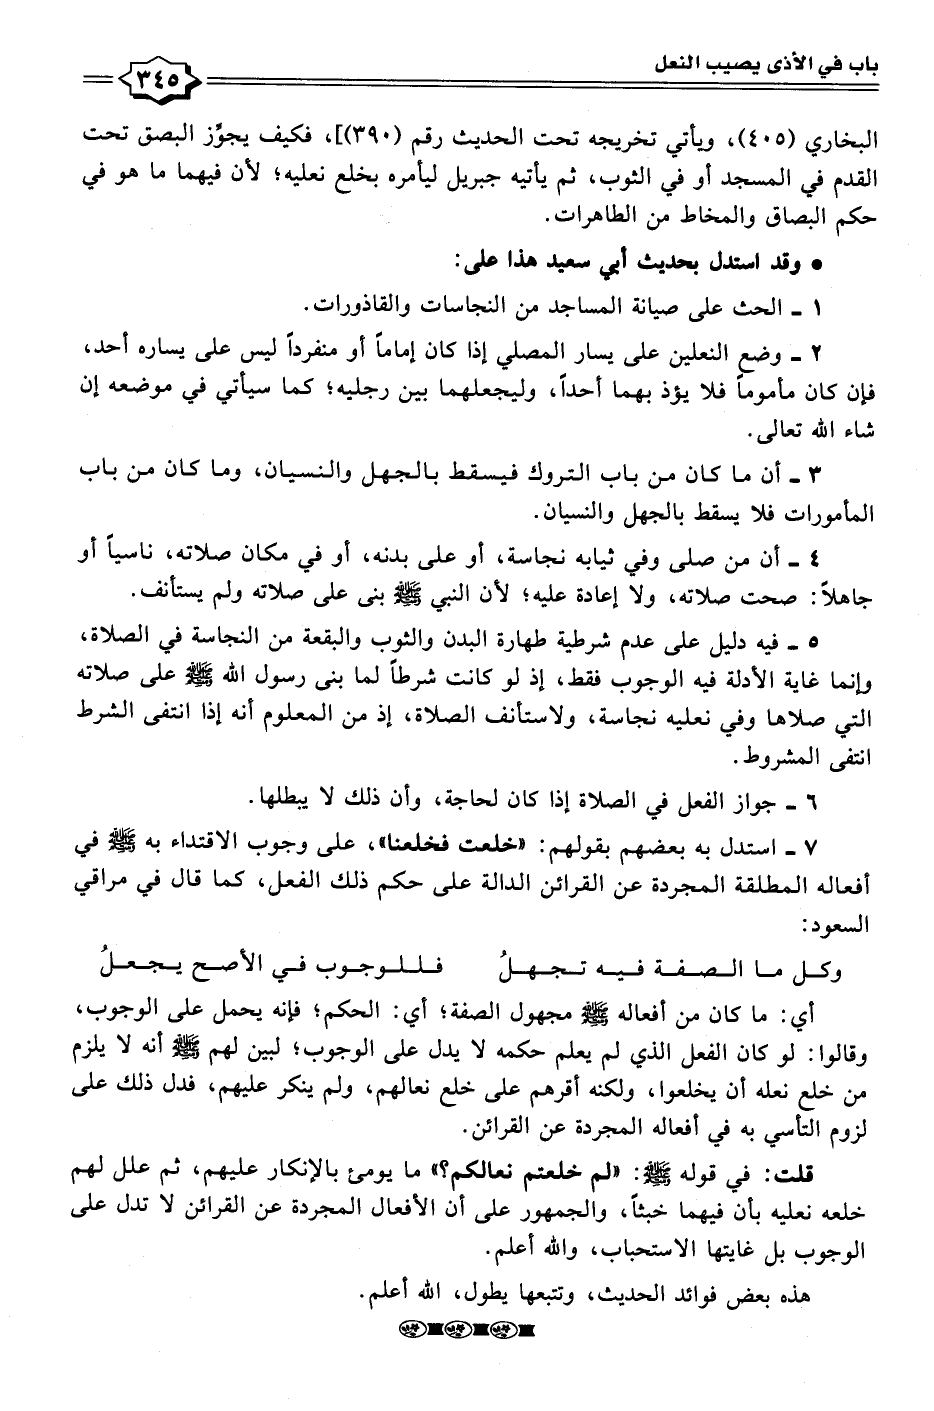 باب في الأذى يصيب النعل
٣٤٥
البخاري (٤٠٥)، ويأتي تخريجه تحت الحديث رقم (٣٩٠)]، فكيف يجوِّز البصق تحت
القدم في المسجد أو في الثوب، ثم يأتيه جبريل ليأمره بخلع نعليه؛ لأن فيهما ما هو في
حكم البصاق والمخاط من الطاهرات.
• وقد استدل بحديث أبي سعيد هذا على:
١ ـ الحث على صيانة المساجد من النجاسات والقاذورات.
٢ ـ وضع النعلين على يسار المصلي إذا كان إماماً أو منفرداً ليس على يساره أحد،
فإن كان مأموماً فلا يؤذ بهما أحداً، وليجعلهما بين رجليه؛ كما سيأتي في موضعه إن
شاء الله تعالى.
٣ ـ أن ما كان من باب التروك فيسقط بالجهل والنسيان، وما كان من باب
المأمورات فلا يسقط بالجهل والنسيان.
٤ ـ أن من صلى وفي ثيابه نجاسة، أو على بدنه، أو في مكان صلاته، ناسياً أو
جاهلاً: صحت صلاته، ولا إعادة عليه؛ لأن النبي ﷺ بنى على صلاته ولم يستأنف.
٥ ـ فيه دليل على عدم شرطية طهارة البدن والثوب والبقعة من النجاسة في الصلاة،
وإنما غاية الأدلة فيه الوجوب فقط، إذ لو كانت شرطاً لما بنى رسول الله ﷺ على صلاته
التي صلاها وفي نعليه نجاسة، ولاستأنف الصلاة، إذ من المعلوم أنه إذا انتفى الشرط
انتفى المشروط.
٦ ـ جواز الفعل في الصلاة إذا كان لحاجة، وأن ذلك لا يبطلها.
٧ ـ استدل به بعضهم بقولهم: «خلعت فخلعنا»، على وجوب الاقتداء به ﷺ في
أفعاله المطلقة المجردة عن القرائن الدالة على حكم ذلك الفعل، كما قال في مراقي
السعود:
وكل ما الصفة فيه تجهلُ فللوجوب في الأصح يجعلُ
أي: ما كان من أفعاله ﷺ مجهول الصفة؛ أي: الحكم؛ فإنه يحمل على الوجوب،
وقالوا: لو كان الفعل الذي لم يعلم حكمه لا يدل على الوجوب؛ لبين لهم ﷺ أنه لا يلزم
من خلع نعله أن يخلعوا، ولكنه أقرهم على خلع نعالهم، ولم ينكر عليهم، فدل ذلك على
لزوم التأسي به في أفعاله المجردة عن القرائن.
قلت: في قوله ﷺ: «لم خلعتم نعالكم؟» ما يومئ بالإنكار عليهم، ثم علل لهم
خلعه نعليه بأن فيهما خبثاً، والجمهور على أن الأفعال المجردة عن القرائن لا تدل على
الوجوب بل غايتها الاستحباب، والله أعلم.
هذه بعض فوائد الحديث، وتتبعها يطول، الله أعلم.